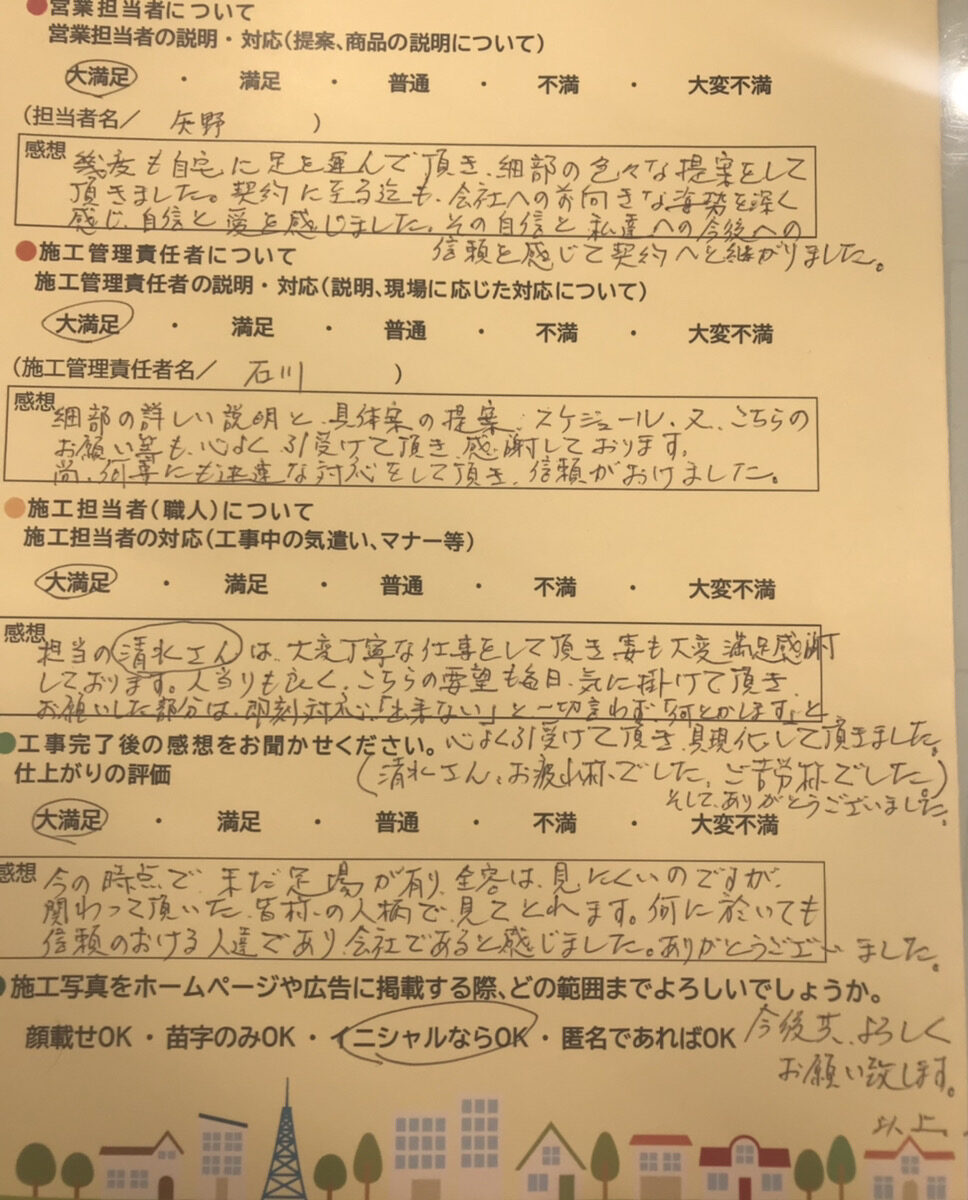 営業担当者について
営業担当者の説明・対応(提案、商品の説明について)
大満足 ・ 満足 ・ 普通 ・ 不満 ・ 大変不満
(担当者名／ 矢野 )
感想
幾度も自宅に足を運んで頂き、細部の色々な提案をして
頂きました。契約に至る迄も、会社への前向きな姿勢を深く
感じ、自信と愛を感じました。その自信と私達への今後への
信頼を感じて契約へと継がりました。
施工管理責任者について
施工管理責任者の説明・対応(説明、現場に応じた対応について)
大満足 ・ 満足 ・ 普通 ・ 不満 ・ 大変不満
(施工管理責任者名／ 石川 )
感想
細部の詳しい説明と、具体案の提案、スケジュール、又、こちらの
お願い等も、心よく引受けて頂き、感謝しております。
尚、何事にも迅速な対応をして頂き、信頼がおけました。
施工担当者(職人)について
施工担当者の対応(工事中の気遣い、マナー等)
大満足 ・ 満足 ・ 普通 ・ 不満 ・ 大変不満
感想
担当の清水さんは、大変丁寧な仕事をして頂き、妻も大変満足感謝
しております。人当りも良く、こちらの要望も毎日、気に掛けて頂き、
お願いした部分は、即刻対応、「出来ない」と一切言わず「何とかします」と
心よく引受けて頂き、具現化して頂きました。
(清水さん、お疲れ様でした、ご苦労様でした)
そして、ありがとうございました。
工事完了後の感想をお聞かせください。
仕上がりの評価
大満足 ・ 満足 ・ 普通 ・ 不満 ・ 大変不満
感想
今の時点で、未だ足場が有り、全容は、見にくいのですが、
関わって頂いた、皆様の人柄で、見てとれます。何に於いても
信頼のおける人達であり、会社であると感じました。ありがとうございました。
施工写真をホームページや広告に掲載する際、どの範囲までよろしいでしょうか。
顔載せOK・苗字のみOK・イニシャルならOK・匿名であればOK
今後共、よろしく
お願い致します。
以上、